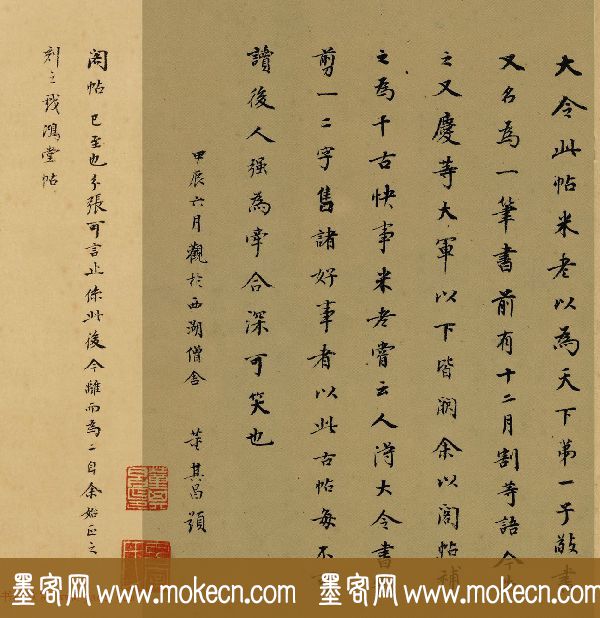 大令此帖米老以為天下第一子敬書
又名為一筆書前有十二月割等語今
之又慶等大軍以下皆闕余以閣帖補
之為千古快事米老嘗云人得大令書
剪一二字售諸好事者以此古帖每不
讀後人强為牽合深可笑也
甲辰六月觀於西湖僧舍 董其昌題
閣帖已至也分張可言止係此後今離而為二自余始正之
刻之戲鴻堂帖
墨客网 www.mokecn.com 墨客网 www.mokecn.com